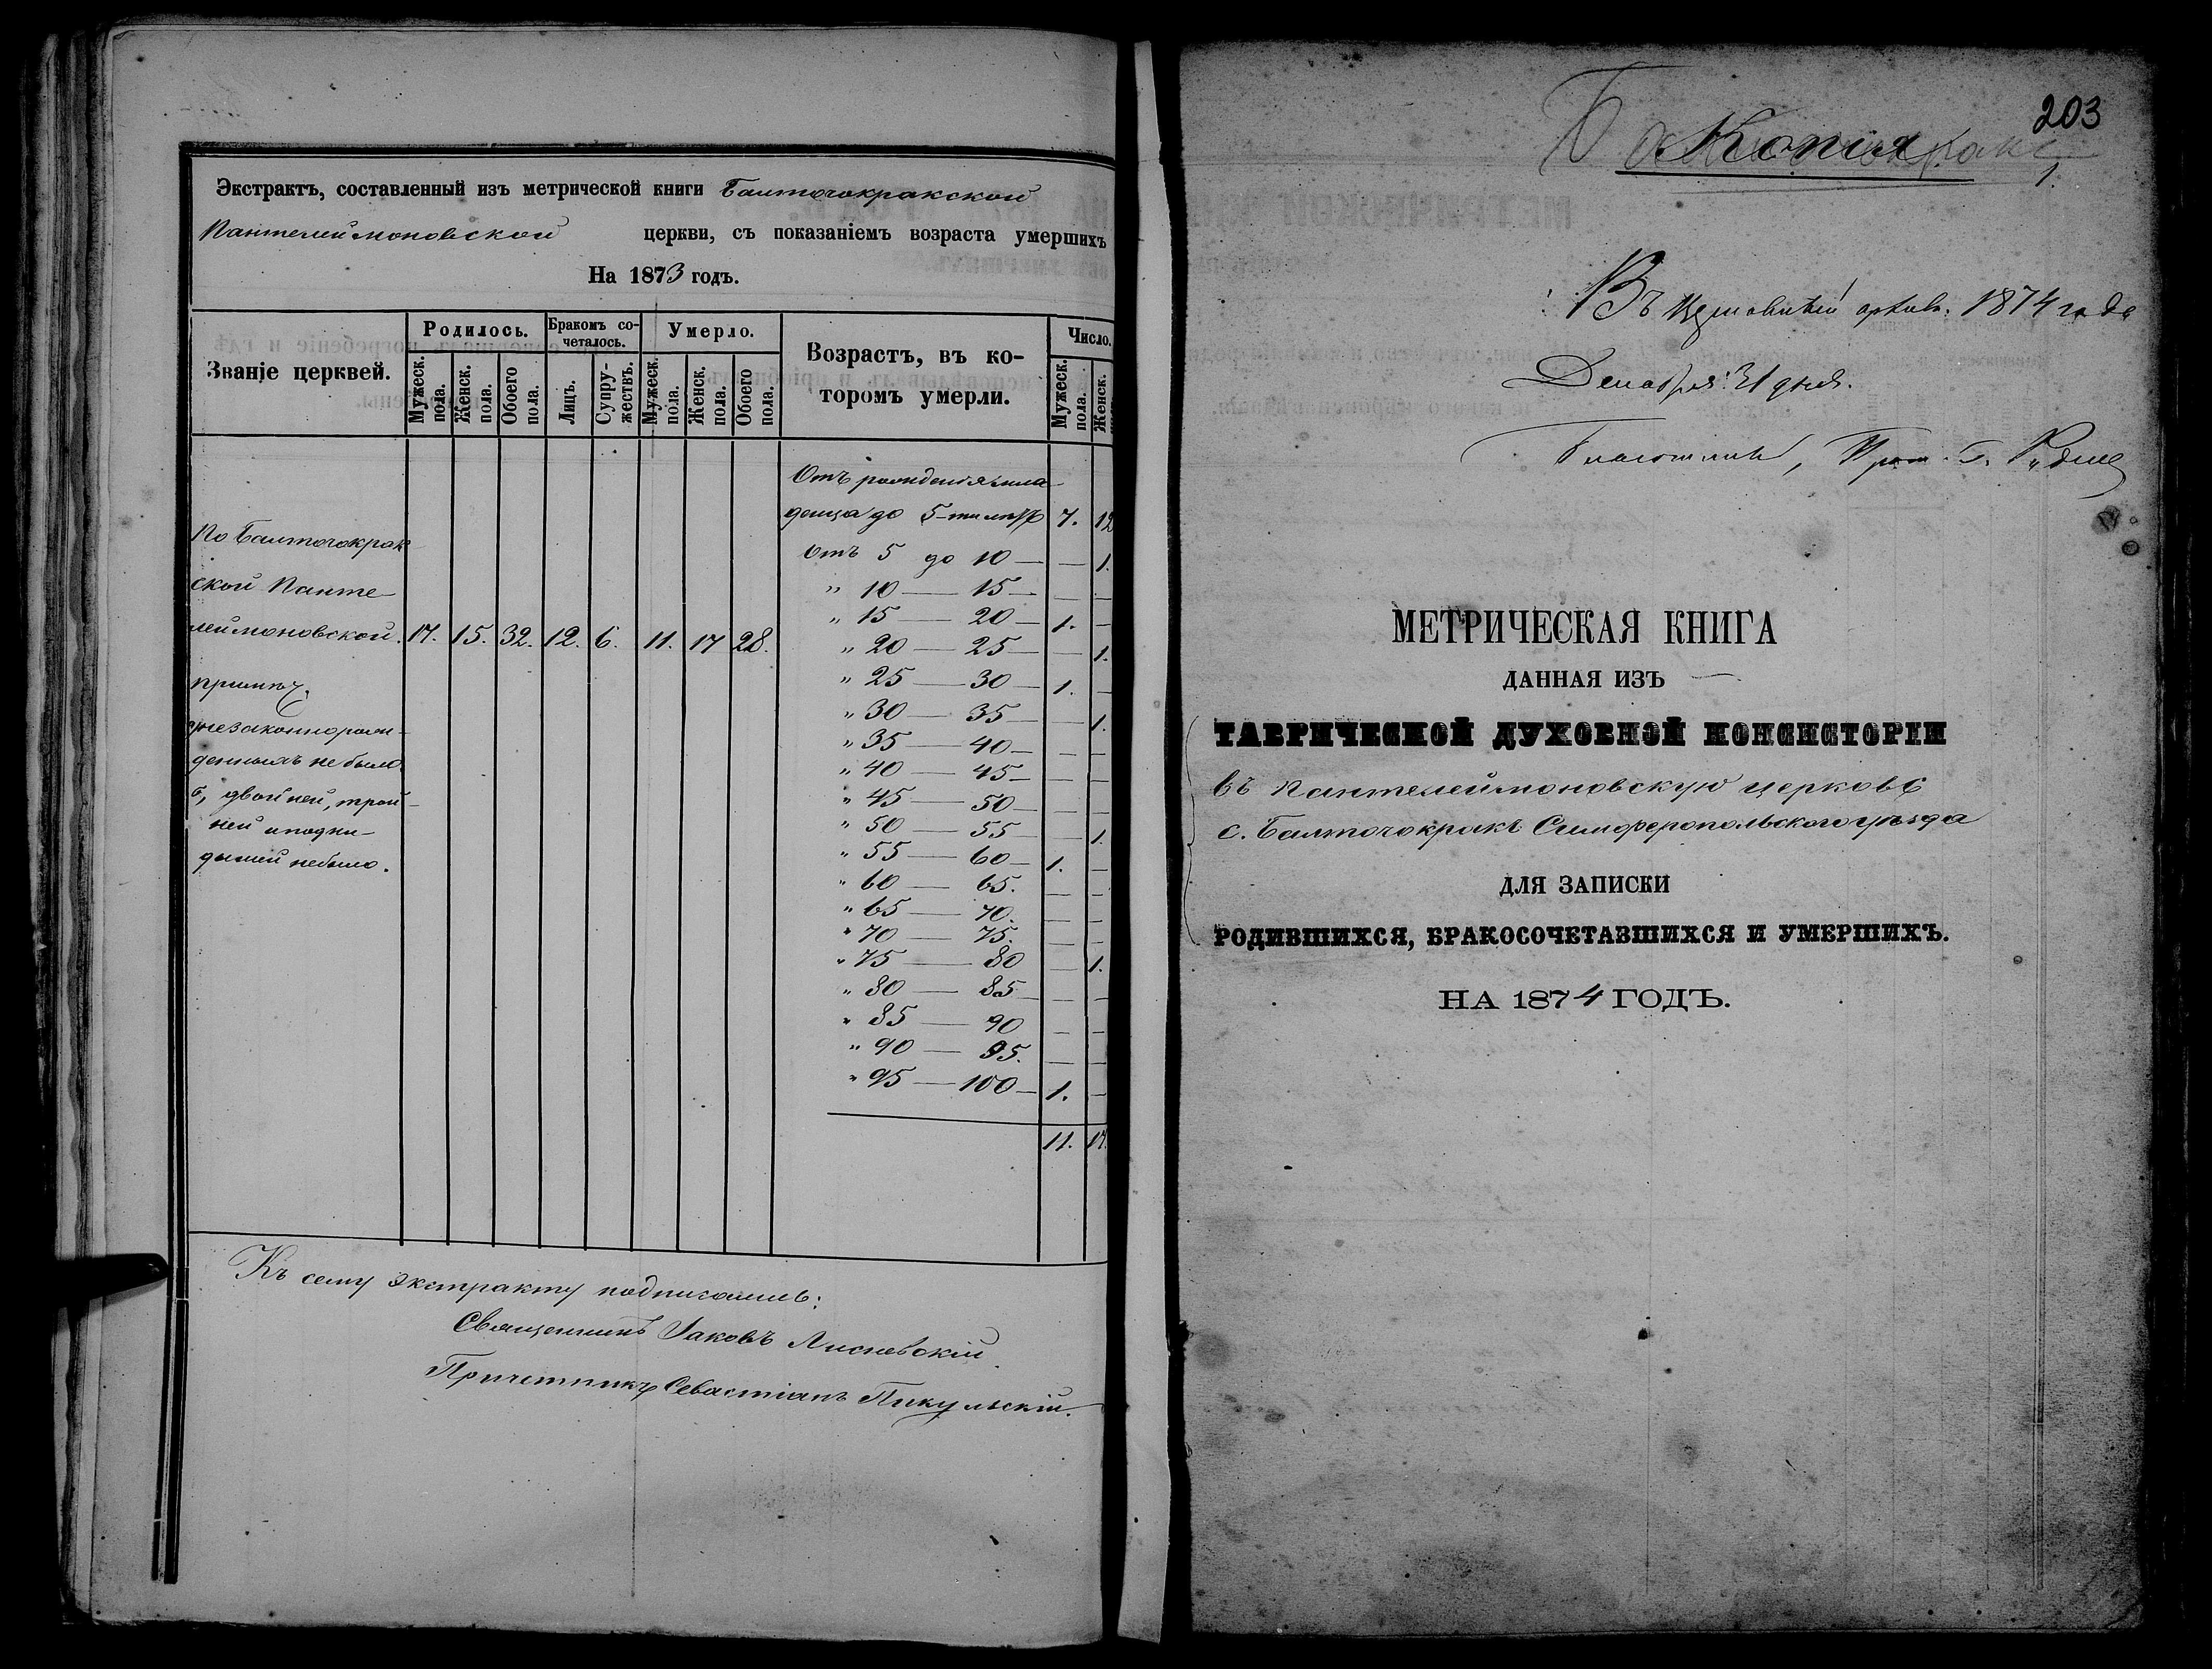 Экстрактъ, составленный изъ метрической книги Балточокракской
Пантелеймоновской церкви, съ показаніемъ возраста умершихъ
На 1873 годъ.
Званіе церквей.
Родилось.
Мужеск. пола.
Женск. пола.
Обоего пола.
Бракомъ со-
четалось.
Лицъ.
Супру-
жествъ.
Умерло.
Мужеск. пола.
Женск. пола.
Обоего пола.
Возрастъ, въ ко-
торомъ умерли.
Число.
Мужеск. пола.
Женск.
По Балточокрак
ской Панте
леймоновской. 17. 15. 32. 12. 6. 11. 17 28.
примѣч.
незаконнорож-
денныхъ не было.
б, двойней, трой-
ней и подки-
дышей небыло.
Отъ рожденія мла
денца до 5-ти лѣтъ 7. 12
Отъ 5 до 10 — — 1.
" 10 — 15 — — —
" 15 — 20 — 1. —
" 20 — 25 — — 1.
" 25 — 30 — 1. —
" 30 — 35 — — 1.
" 35 — 40 — — —
" 40 — 45 — — —
" 45 — 50 — — —
" 50 — 55 — — 1.
" 55 — 60 — 1. —
" 60 — 65. — —
" 65 — 70. — —
" 70 — 75. — —
" 75 — 80 — 1.
" 80 — 85 — —
" 85 — 90 — —
" 90 — 95. — —
" 95 — 100 — 1. —
11. 17.
Къ сему экстракту подписались:
Священникъ Іаковъ Лисневскій
Причетникъ Севастіанъ Пикульскій.
203
Копія
1.
Въ 1874 года
Декабря 31 дня.
МЕТРИЧЕСКАЯ КНИГА
ДАННАЯ ИЗЪ
ТАВРИЧЕСКОЙ ДУХОВНОЙ КОНСИСТОРІИ
въ Пантелеймоновскую церковь
с. Балточокракъ Симферопольскаго уѣзда
ДЛЯ ЗАПИСКИ
РОДИВШИХСЯ, БРАКОСОЧЕТАВШИХСЯ И УМЕРШИХЪ.
НА 1874 ГОДЪ.